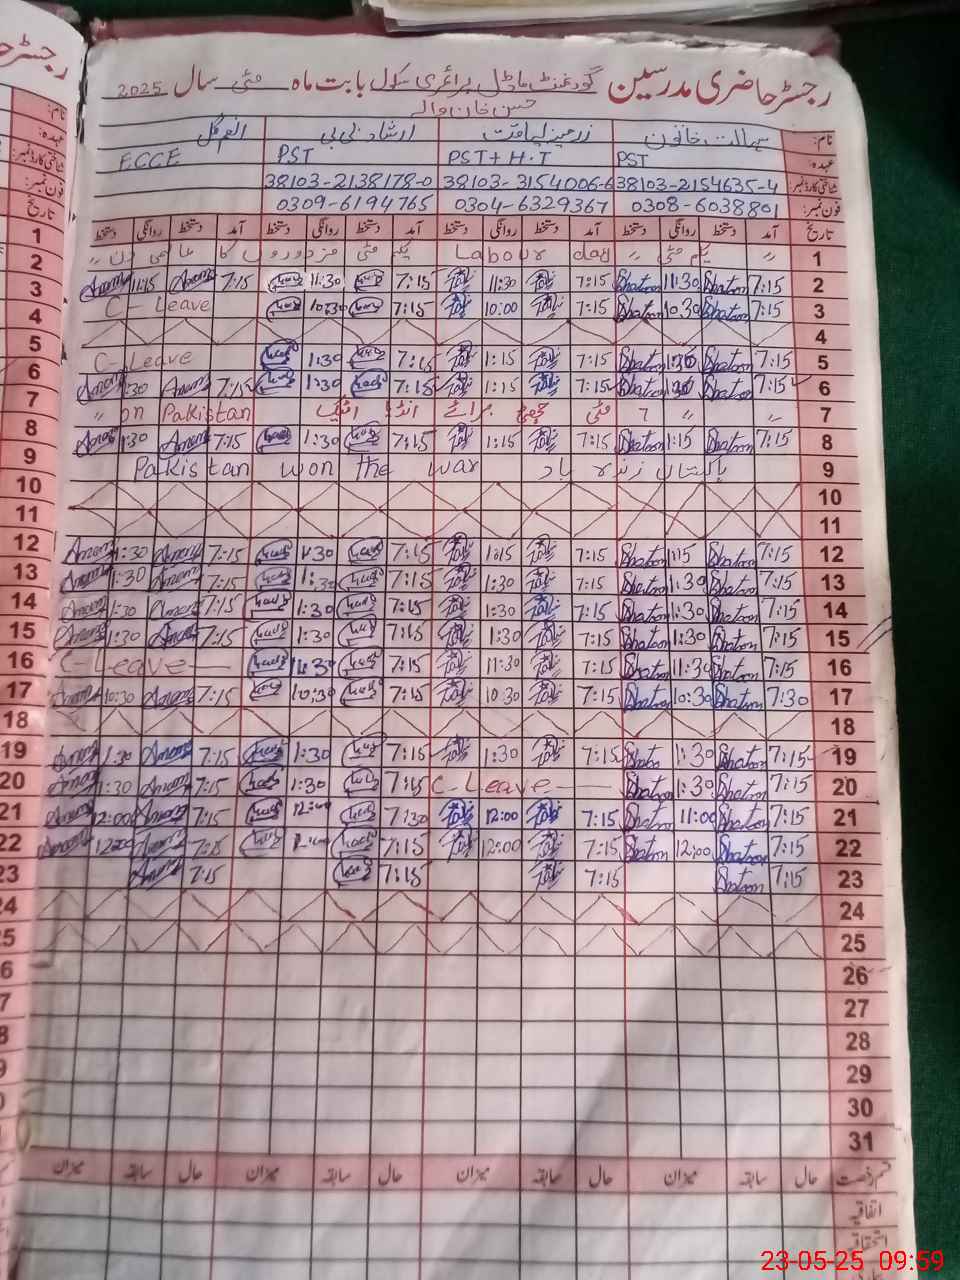 رجسٹر حاضری مدرسین گورنمنٹ ماڈل پرائمری سکول بابت ماہ مئی سال 2025
حسن خان والہ
نام: زرمینہ لیاقت ارشاد بی بی انعم گل
عہدہ: PST PST + H.T PST E.C.C.E
شناختی کارڈ نمبر: 38103-2154635-4 38103-3154006-6 38103-2138178-0
فون نمبر: 0308-6038801 0304-6329367 0309-6194765
تاریخ آمد دستخط روانگی دستخط آمد دستخط روانگی دستخط آمد دستخط روانگی دستخط آمد دستخط روانگی دستخط
1 〃 یکم مئی 〃 Labour day یکم مئی مزدوروں کا عالمی دن 〃
2 7:15 Shatoon 11:30 Shatoon 7:15 11:30 7:15 11:30 7:15 Anam 11:15 Anam
3 7:15 Shatoon 10:30 Shatoon 7:15 10:00 7:15 10:30 C-Leave
4
5 7:15 Shatoon 1:30 Shatoon 7:15 1:15 7:15 1:30 C-Leave
6 7:15 Shatoon 1:30 Shatoon 7:15 1:15 7:15 1:30 7:15 Anam 1:30 Anam
7 〃 〃 7 مئی چھٹی برائے انڈیا اٹیک on Pakistan 〃
8 7:15 Shatoon 1:15 Shatoon 7:15 1:15 7:15 1:30 7:15 Anam 1:30 Anam
9 پاکستان زندہ باد Pakistan won the war
10
11
12 7:15 Shatoon 1:15 Shatoon 7:15 1:15 7:15 1:30 7:15 Anam 1:30 Anam
13 7:15 Shatoon 1:30 Shatoon 7:15 1:30 7:15 1:30 7:15 Anam 1:30 Anam
14 7:15 Shatoon 1:30 Shatoon 7:15 1:30 7:15 1:30 7:15 Anam 1:30 Anam
15 7:15 Shatoon 1:30 Shatoon 7:15 1:30 7:15 1:30 7:15 Anam 1:30 Anam
16 7:15 Shatoon 11:30 Shatoon 7:15 11:30 7:15 11:30 C-Leave
17 7:30 Shatoon 10:30 Shatoon 7:15 10:30 7:15 10:30 7:15 Anam 10:30 Anam
18
19 7:15 Shatoon 1:30 Shatoon 7:15 1:30 7:15 1:30 7:15 Anam 1:30 Anam
20 7:15 Shatoon 1:30 Shatoon C-Leave 7:15 1:30 7:15 Anam 1:30 Anam
21 7:15 Shatoon 11:00 Shatoon 7:15 12:00 7:30 12:00 7:15 Anam 12:00 Anam
22 7:15 Shatoon 12:00 Shatoon 7:15 12:00 7:15 12:00 7:15 Anam 12:00 Anam
23 7:15 Shatoon 7:15 7:15 7:15 Anam
24
25
26
27
28
29
30
31
قسم رخصت حال سابقہ میزان حال سابقہ میزان حال سابقہ میزان حال سابقہ میزان
اتفاقیہ
استحقاقیہ
23-05-25 09:59